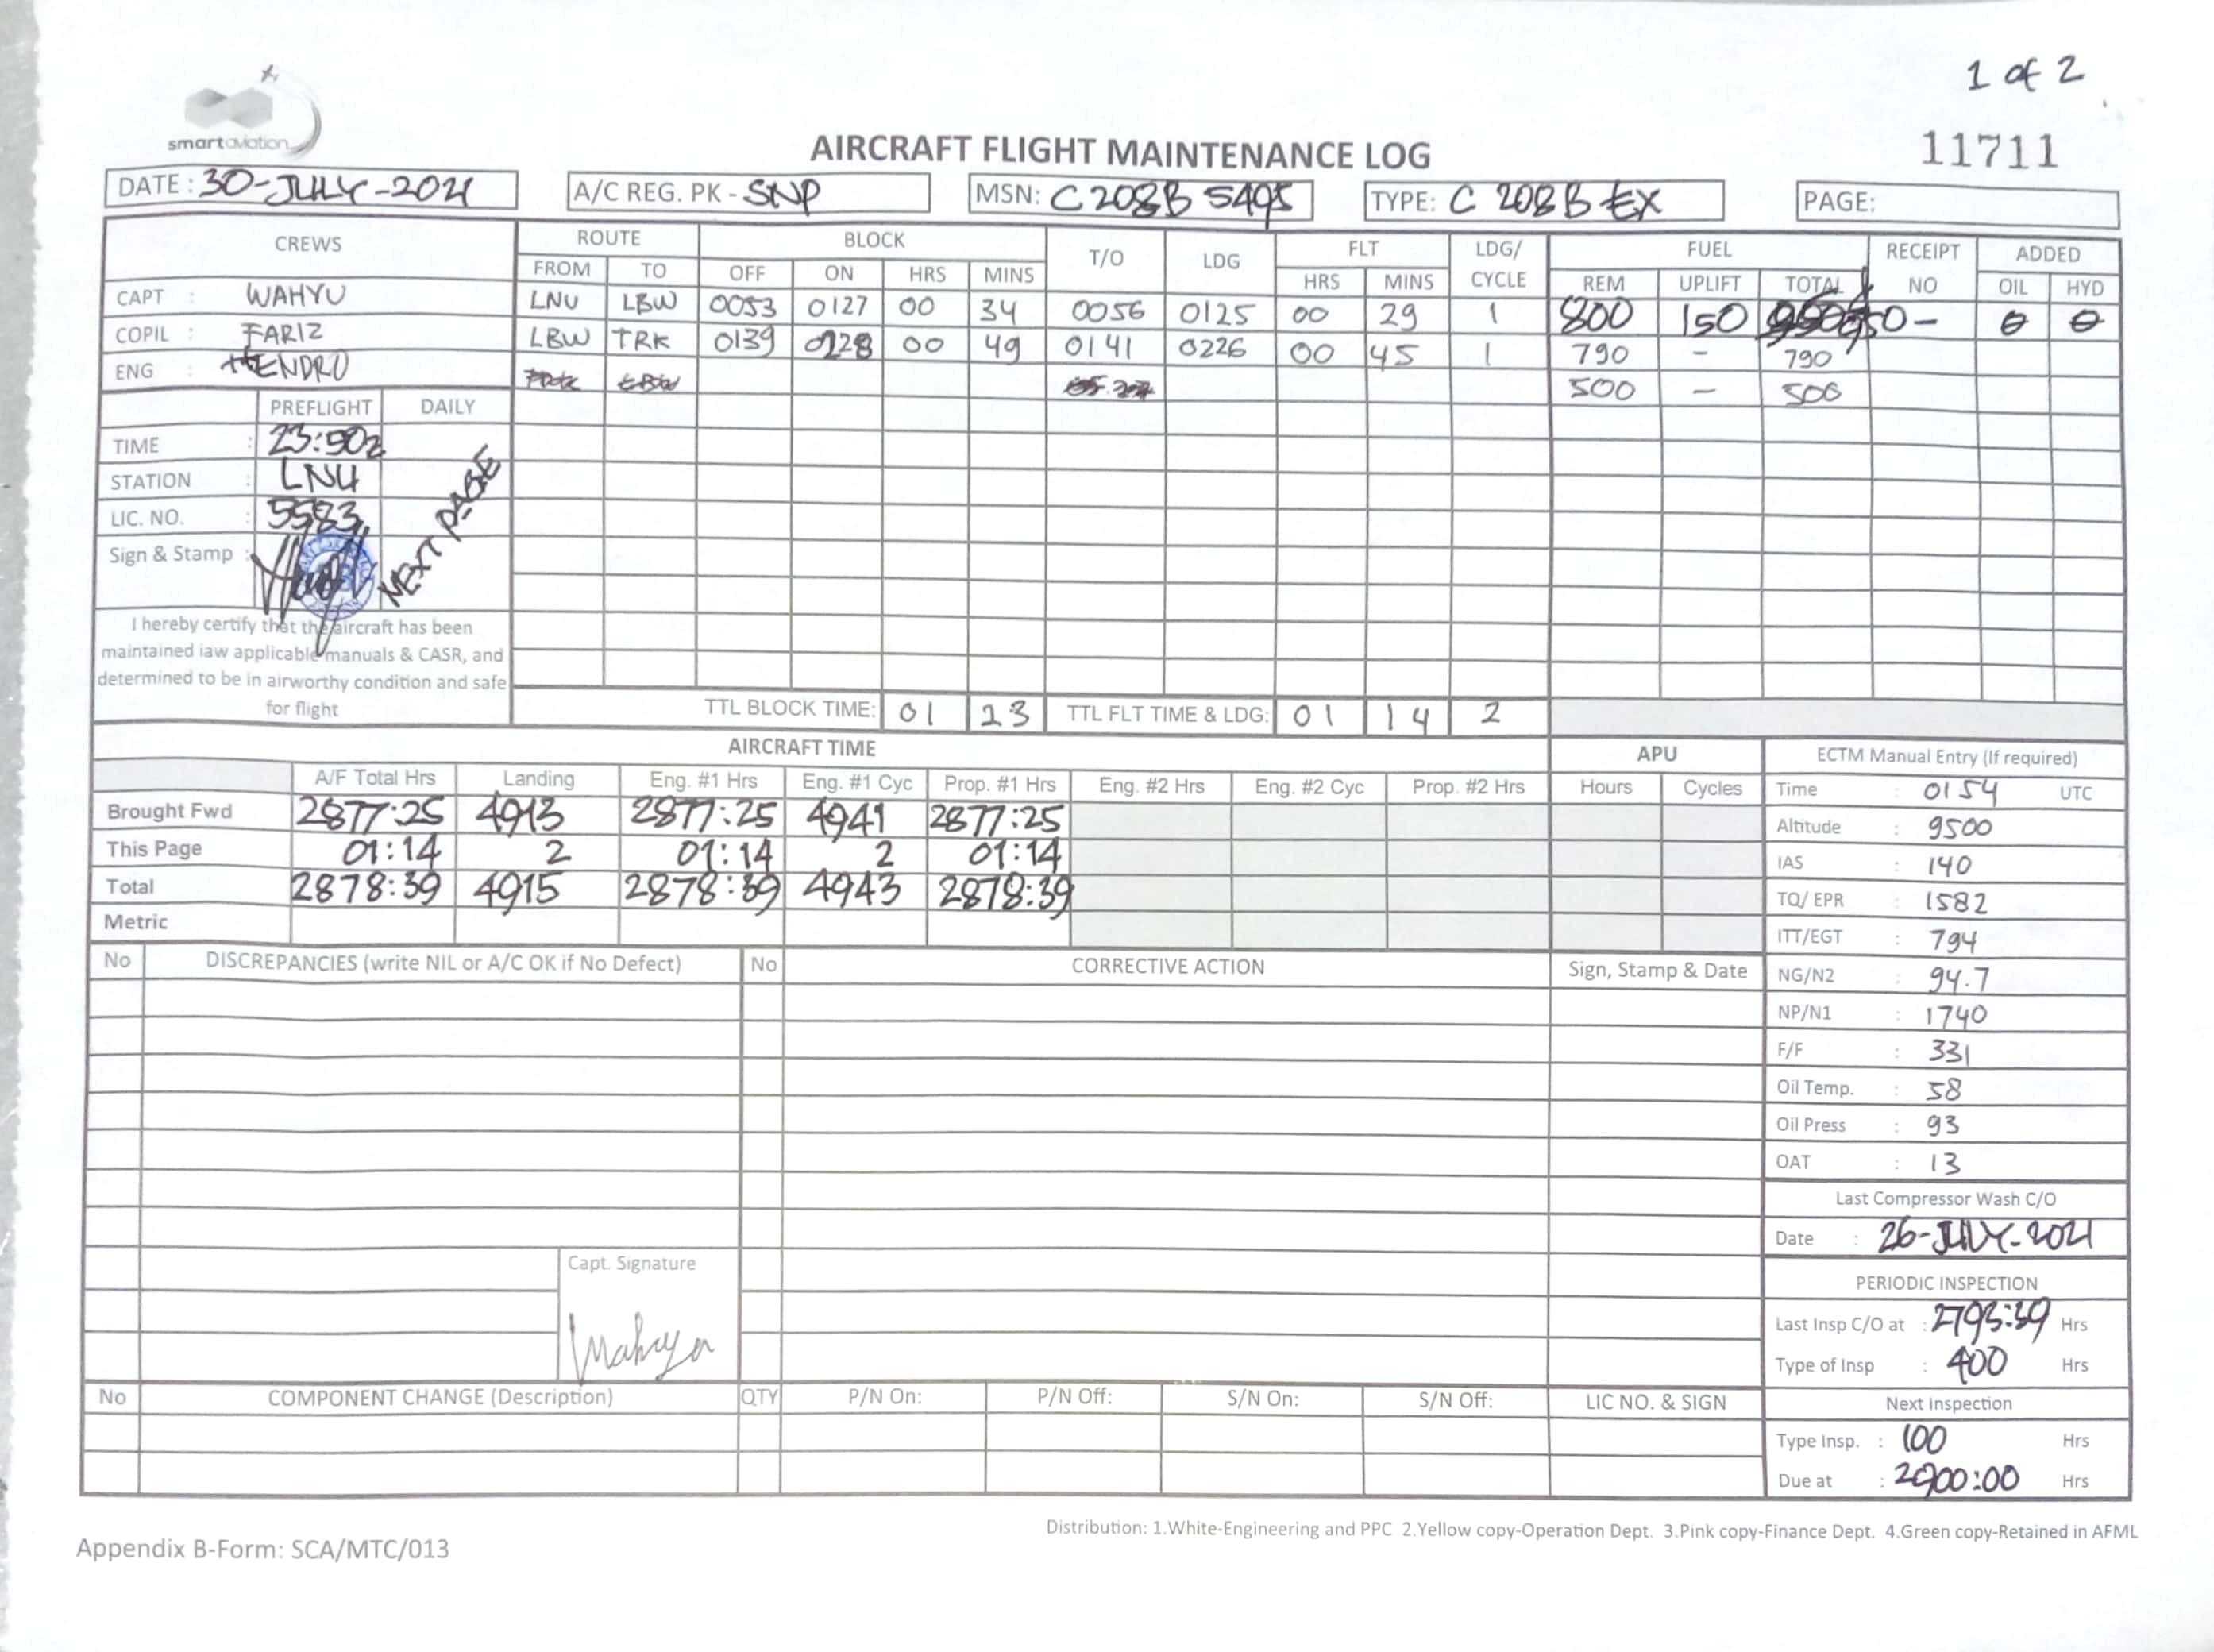 1 of 2
smartaviation
11711
AIRCRAFT FLIGHT MAINTENANCE LOG
DATE : 30-JULY-2021 A/C REG. PK - SNP MSN: C208B 5495 TYPE: C 208B EX PAGE:
CREWS ROUTE BLOCK T/O LDG FLT LDG/ CYCLE FUEL RECEIPT NO ADDED
FROM TO OFF ON HRS MINS HRS MINS REM UPLIFT TOTAL OIL HYD
CAPT : WAHYU LNU LBW 0053 0127 00 34 0056 0125 00 29 1 800 150 950 - 0 0
COPIL : FARIZ LBW TRK 0139 0228 00 49 0141 0226 00 45 1 790 - 790
ENG : HENDRO 500 - 500
PREFLIGHT DAILY
TIME : 23:50z
STATION : LNU
LIC. NO. : 5583
NEXT PAGE
Sign & Stamp :
I hereby certify that the aircraft has been
maintained iaw applicable manuals & CASR, and
determined to be in airworthy condition and safe
for flight
TTL BLOCK TIME: 01 23 TTL FLT TIME & LDG: 01 14 2
AIRCRAFT TIME APU
A/F Total Hrs Landing Eng. #1 Hrs Eng. #1 Cyc Prop. #1 Hrs Eng. #2 Hrs Eng. #2 Cyc Prop. #2 Hrs Hours Cycles
Brought Fwd 2877:25 4913 2877:25 4941 2877:25
This Page 01:14 2 01:14 2 01:14
Total 2878:39 4915 2878:39 4943 2878:39
Metric
ECTM Manual Entry (If required)
Time : 0154 UTC
Altitude : 9500
IAS : 140
TQ/ EPR : 1582
ITT/EGT : 794
NG/N2 : 94.7
NP/N1 : 1740
F/F : 331
Oil Temp. : 58
Oil Press : 93
OAT : 13
Last Compressor Wash C/O
Date : 26-JULY-2021
PERIODIC INSPECTION
Last Insp C/O at : 2793:39 Hrs
Type of Insp : 400 Hrs
Next Inspection
Type Insp. : 100 Hrs
Due at : 2900:00 Hrs
No DISCREPANCIES (write NIL or A/C OK if No Defect) No CORRECTIVE ACTION Sign, Stamp & Date
Capt. Signature
Wahyu
No COMPONENT CHANGE (Description) QTY P/N On: P/N Off: S/N On: S/N Off: LIC NO. & SIGN
Distribution: 1.White-Engineering and PPC 2.Yellow copy-Operation Dept. 3.Pink copy-Finance Dept. 4.Green copy-Retained in AFML
Appendix B-Form: SCA/MTC/013